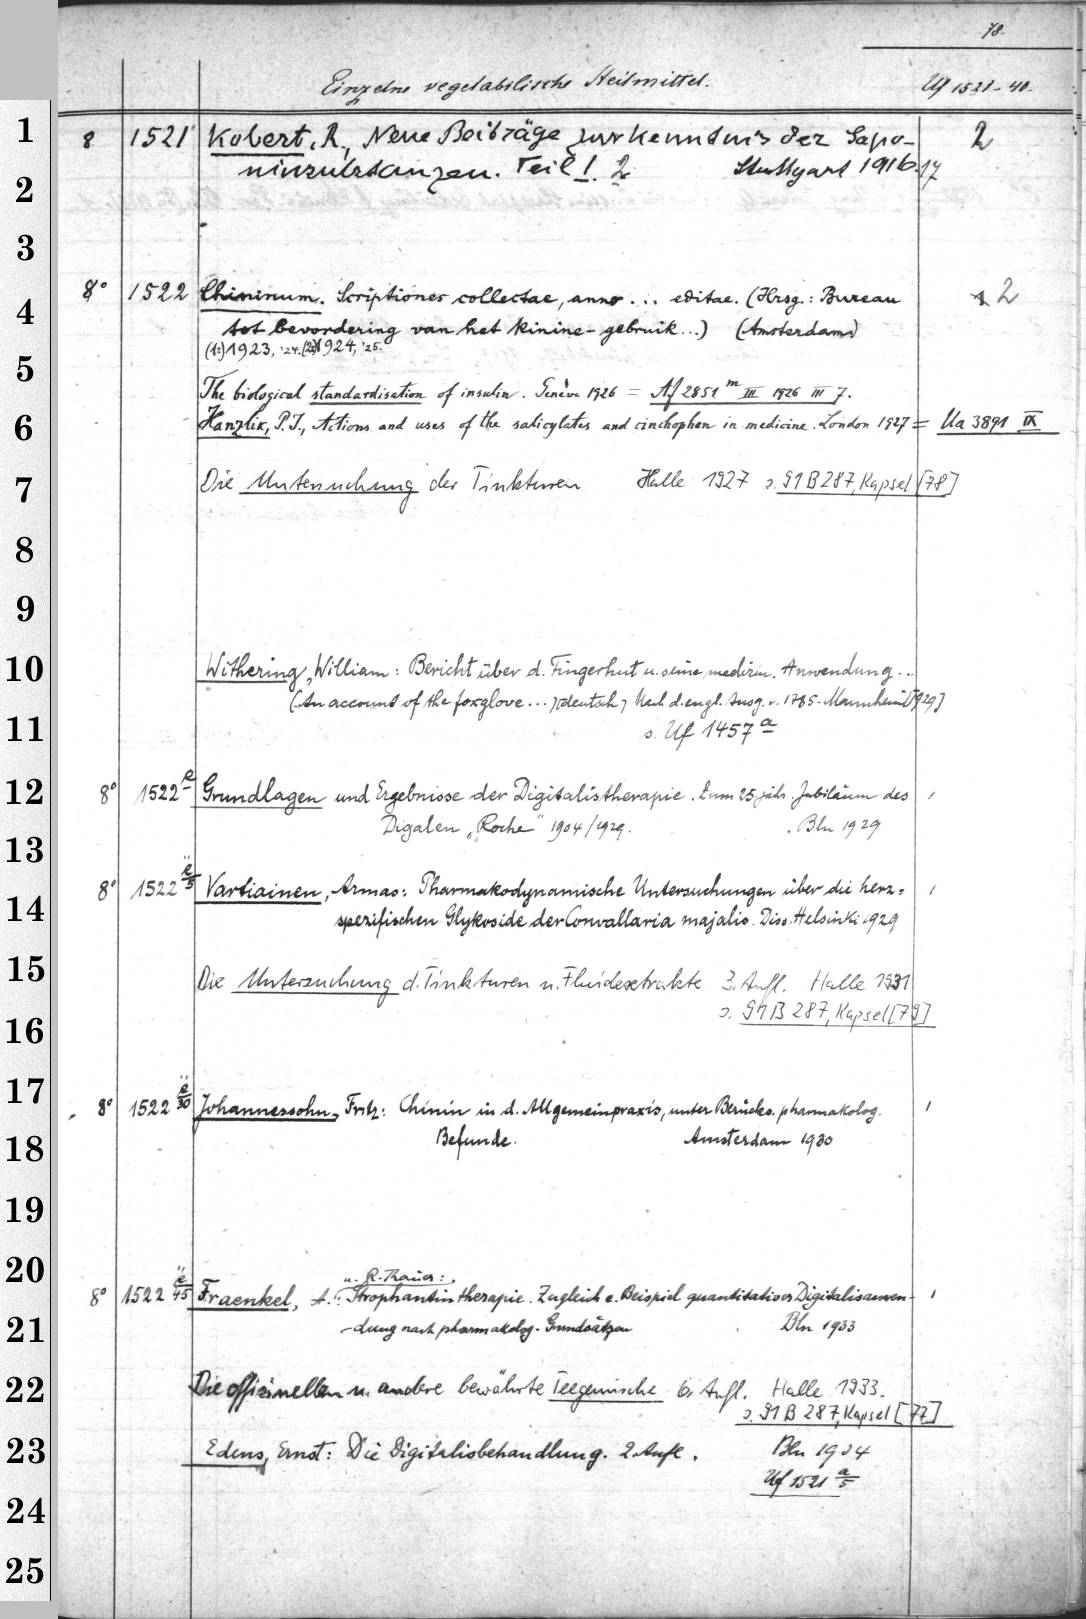 78.
Einzelne vegetabilische Heilmittel. Uf 1521-40.
1
8 1521 Kobert, R., Neue Beiträge zur Kenntnis der Sapo- 2
2
ninsubstanzen. Teil 1. 2. Stuttgart 1916.17
3
8° 1522 Chininum. Scriptiones collectae, anno ... editae. (Hrsg.: Bureau 2
4
tot bevordering van het Kinine-gebruik...) (Amsterdam)
(1:) 1923, '24. (2:) 1924, '25.
5
The biological standardisation of insulin. Genève 1926 = Af 2851 m III 1926 III 7.
6
Hanzlik, P. J., Actions and uses of the salicylates and cinchophen in medicine. London 1927 = Ua 3891 IX
7
Die Untersuchung der Tinkturen Halle 1927 s. 91 B 287, Kapsel [78]
8
9
10
Withering, William: Bericht über d. Fingerhut u. seine medizin. Anwendung...
(An account of the foxglove ... , deutsch) Nach d. engl. Ausg. v. 1785. Mannheim [1929]
11
s. Uf 1457 a
12
8° 1522 e Grundlagen und Ergebnisse der Digitalistherapie. Zum 25 jähr. Jubiläum des
Digalen „Roche" 1904/1929. Bln 1929
13
8° 1522 ë/5 Vartiainen, Armas: Pharmakodynamische Untersuchungen über die herz=
14
spezifischen Glykoside der Convallaria majalis. Diss. Helsinki 1929
15
Die Untersuchung d. Tinkturen u. Fluidextrakte 3. Aufl. Halle 1931
16
s. 91 B 287, Kapsel [79]
17
8° 1522 ë/30 Johannessohn, Fritz: Chinin in d. Allgemeinpraxis, unter Berücks. pharmakolog.
18
Befunde. Amsterdam 1930
19
20
u. R. Thauer:
8° 1522 ë/45 Fraenkel, A.: Strophantintherapie. Zugleich e. Beispiel quantitativer Digitalisanwen-
21
dung nach pharmakolog. Grundsätzen Bln 1933
22
Die offizinellen u. andere bewährte Teegemische 6. Aufl. Halle 1933.
s. 91 B 287, Kapsel [77]
23
Edens, Ernst: Die Digitalisbehandlung. 2. Aufl. Bln 1934
24
Uf 1521 a/5
25